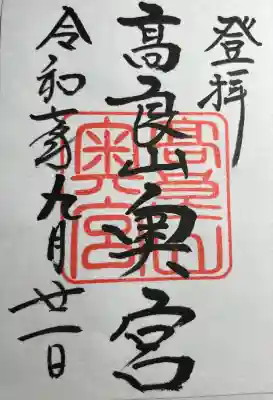 登拝
高良山奥宮
令和年九月廿一日
高良山
奥宮